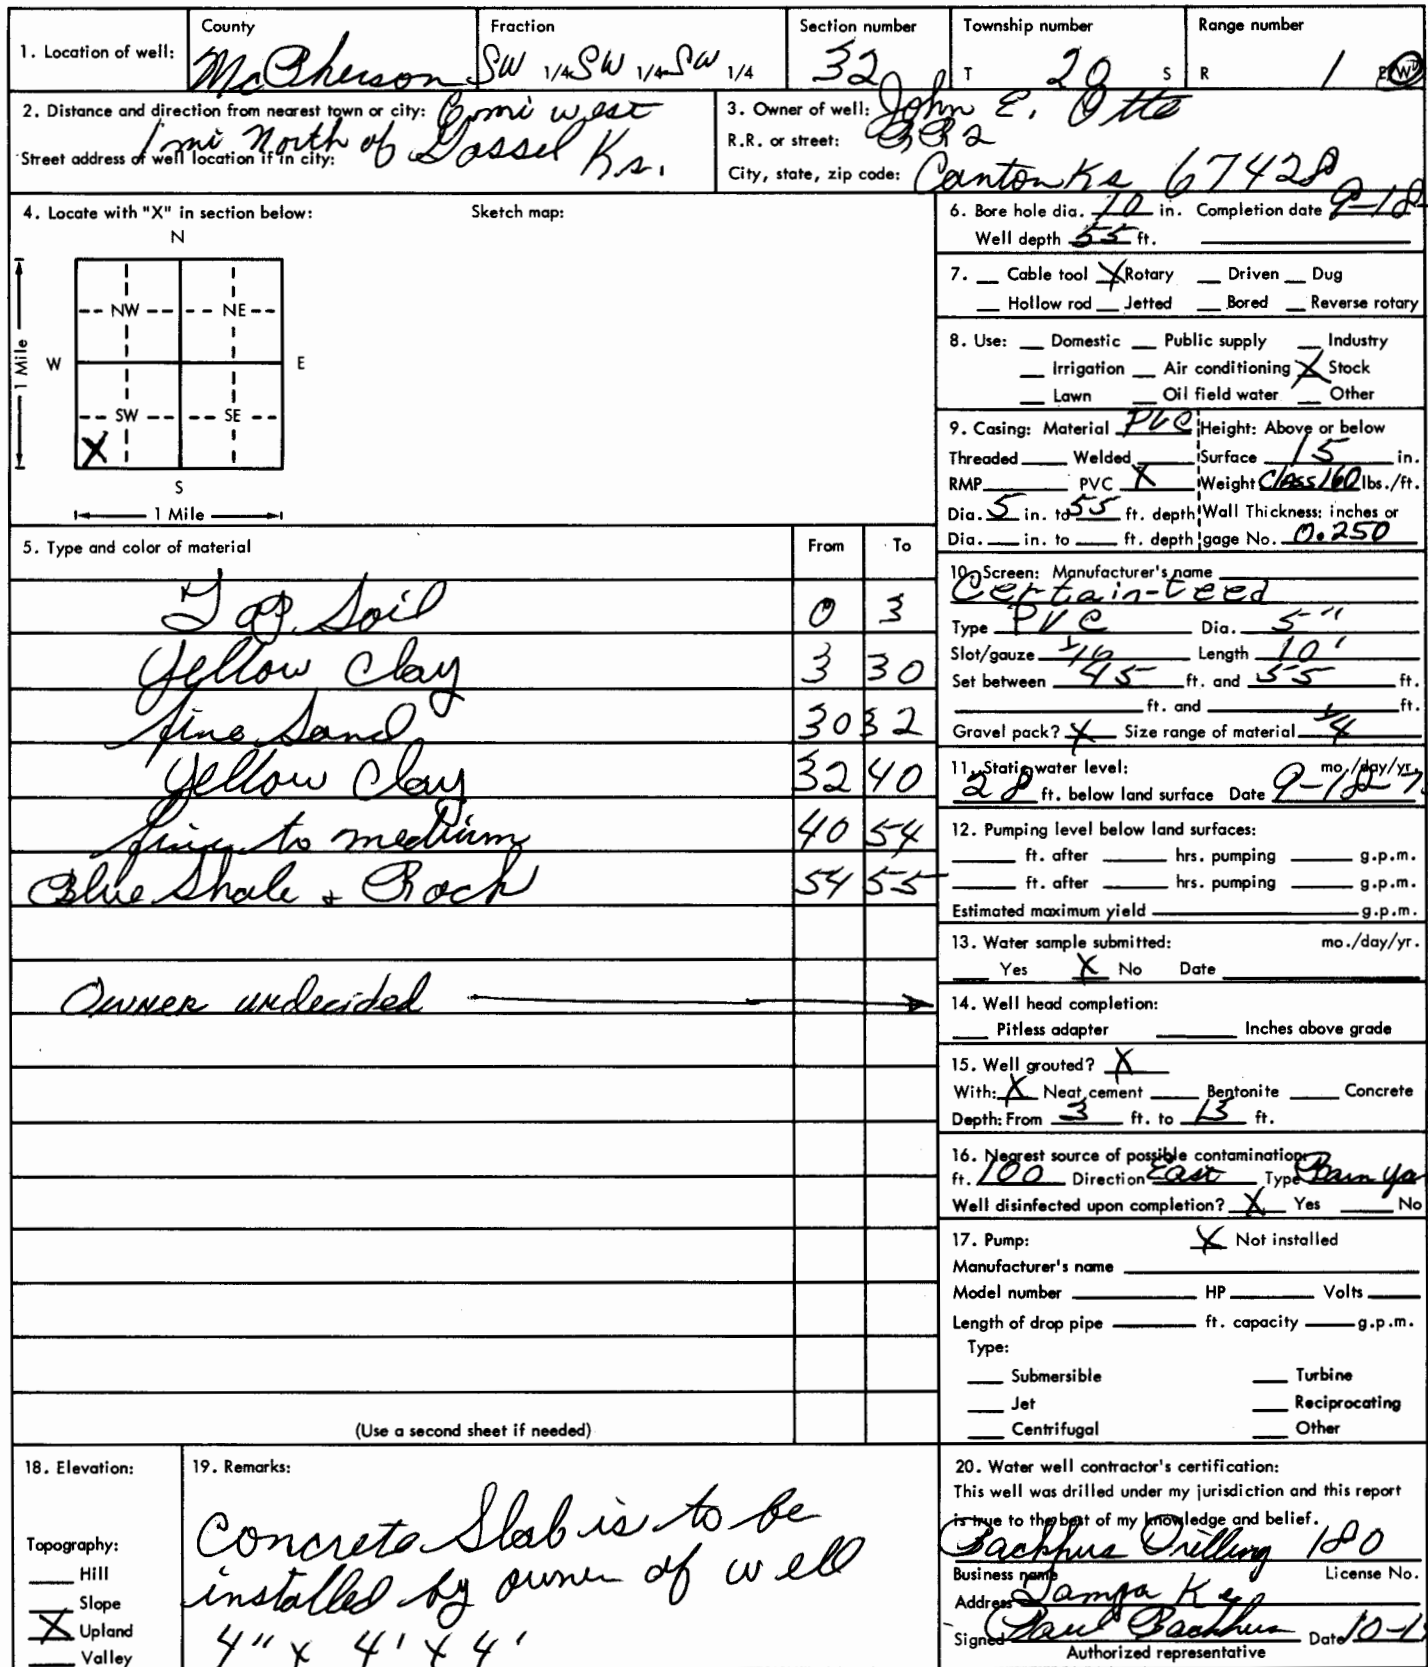 County Fraction Section number Township number Range number
1. Location of well: McPherson SW 1/4 SW 1/4 SW 1/4 32 T 20 S R 1 E(W)
2. Distance and direction from nearest town or city: 6 mi west
1 mi North of Gossel Ks.
Street address of well location if in city:
3. Owner of well: John E. Otte
R.R. or street: RR 2
City, state, zip code: Canton Ks 67428
4. Locate with "X" in section below: Sketch map:
N
NW NE
W E
1 Mile
SW SE
X
S
1 Mile
5. Type and color of material From To
Top Soil 0 3
Yellow Clay 3 30
fine Sand 30 32
Yellow Clay 32 40
fine to medium 40 54
Blue Shale + Rock 54 55
Owner undecided
(Use a second sheet if needed)
6. Bore hole dia. 10 in. Completion date 9-18-
Well depth 55 ft.
7. Cable tool X Rotary Driven Dug
Hollow rod Jetted Bored Reverse rotary
8. Use: Domestic Public supply Industry
Irrigation Air conditioning X Stock
Lawn Oil field water Other
9. Casing: Material PVC Height: Above or below
Threaded Welded Surface 15 in.
RMP PVC X Weight Class 160 lbs./ft.
Dia. 5 in. to 55 ft. depth Wall Thickness: inches or
Dia. in. to ft. depth gage No. 0.250
10. Screen: Manufacturer's name
Certain-teed
Type PVC Dia. 5"
Slot/gauze 1/16 Length 10'
Set between 45 ft. and 55 ft.
ft. and ft.
Gravel pack? X Size range of material 1/4
11. Static water level: mo./day/yr.
28 ft. below land surface Date 9-18-7
12. Pumping level below land surfaces:
ft. after hrs. pumping g.p.m.
ft. after hrs. pumping g.p.m.
Estimated maximum yield g.p.m.
13. Water sample submitted: mo./day/yr.
Yes X No Date
14. Well head completion:
Pitless adapter Inches above grade
15. Well grouted? X
With: X Neat cement Bentonite Concrete
Depth: From 3 ft. to 13 ft.
16. Nearest source of possible contamination:
ft. 100 Direction East Type Barn ya
Well disinfected upon completion? X Yes No
17. Pump: X Not installed
Manufacturer's name
Model number HP Volts
Length of drop pipe ft. capacity g.p.m.
Type:
Submersible Turbine
Jet Reciprocating
Centrifugal Other
18. Elevation:
Topography:
Hill
Slope
X Upland
Valley
19. Remarks:
Concrete Slab is to be
installed by owner of well
4" x 4' x 4'
20. Water well contractor's certification:
This well was drilled under my jurisdiction and this report
is true to the best of my knowledge and belief.
Backhus Drilling 180
Business name License No.
Address Tampa Ks
Signed Paul Backhus Date 10-1
Authorized representative